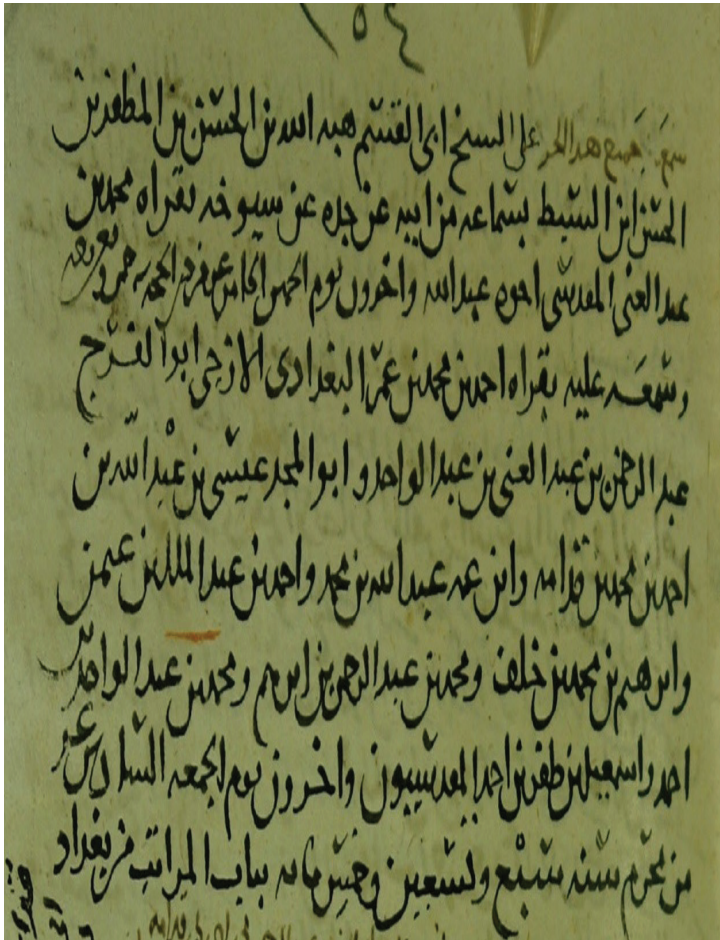 ١٥٤
سمع جميع هذا الجز على الشيخ ابى القسم هبه الله بن الحسن بن المظفر بن
الحسن ابن السبط بسماعه من ابيه عن جده عن شيوخه بقراه محمد بن
عبد الغنى المقدسى اخوه عبد الله واخرون يوم الخميس الخامس عشر من
وسمعه عليه بقراه احمد بن محمد بن عمر البغدادى الازجى ابو الفرج
عبد الرحمن بن عبد الغنى بن عبد الواحد وابو المجد عيسى بن عبد الله بن
احمد بن محمد بن قدامه وابن عمه عبد الله بن محمد واحمد بن عبد الملك بن عثمن
وابرهيم بن محمد بن خلف ومحمد بن عبد الرحمن بن ابرهيم ومحمد بن عبد الواحد بن
احمد واسمعيل بن ظفر بن احمد المقدسيون واخرون يوم الجمعه السادس عشر
من محرم سنه سبع وتسعين وخمس مايه بباب المراتب من بغداد